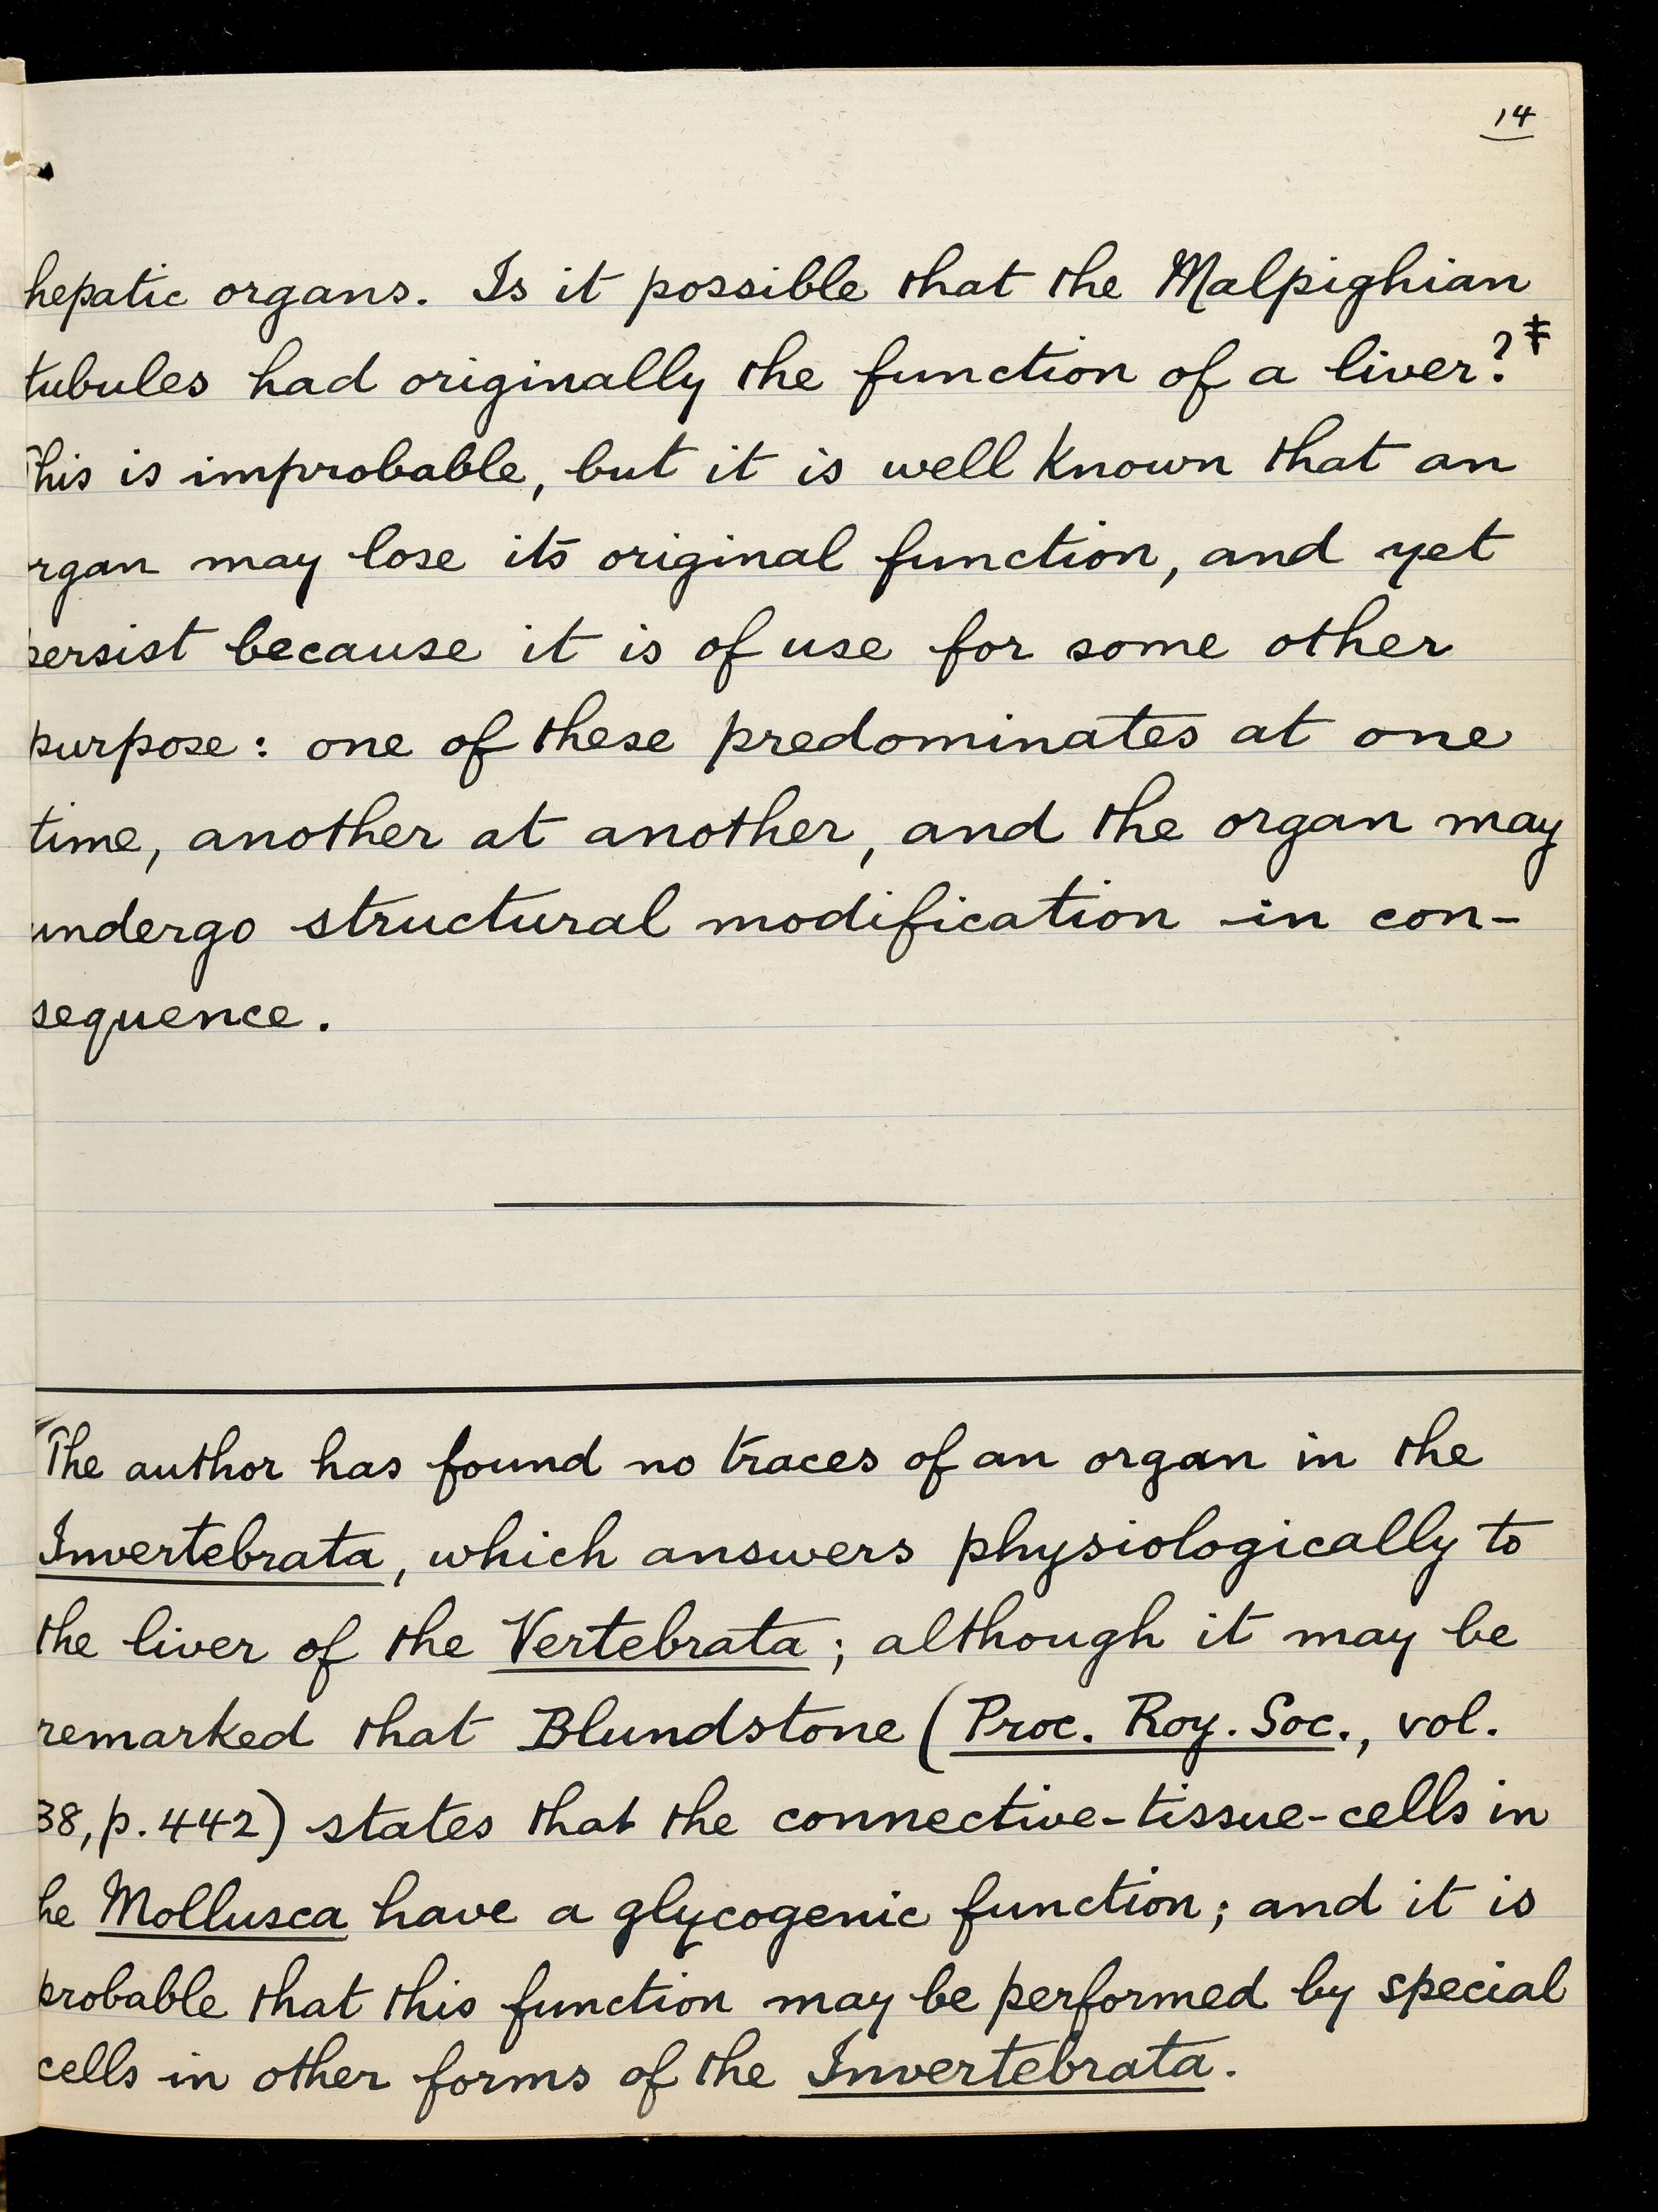 14
hepatic organs. Is it possible that the Malpighian
tubules had originally the function of a liver?‡
This is improbable, but it is well known that an
rgan may lose its original function, and yet
persist because it is of use for some other
purpose: one of these predominates at one
time, another at another, and the organ may
undergo structural modification in con-
sequence.
The author has found no traces of an organ in the
Invertebrata, which answers physiologically to
the liver of the Vertebrata; although it may be
remarked that Blundstone (Proc. Roy. Soc., vol.
38, p. 442) states that the connective-tissue-cells in
he Mollusca have a glycogenic function; and it is
probable that this function may be performed by special
cells in other forms of the Invertebrata.